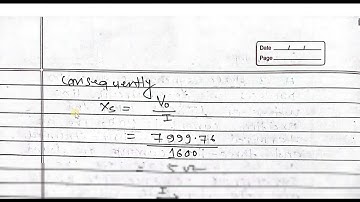 Date / /
Page
consequently
Xs = V₀ / I
= 7999.76 / 1600
= 5 Ω
I